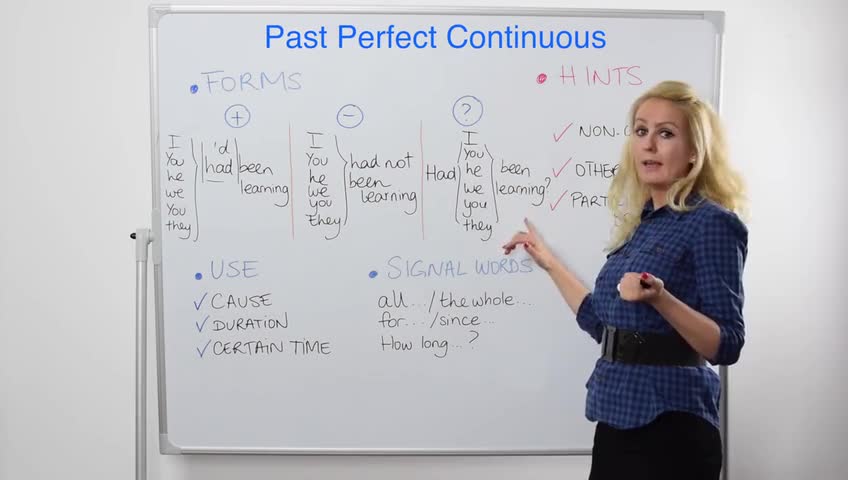 Past Perfect Continuous
• FORMS
+
I
You
he
we
You
they
'd
had been
learning
−
I
You
he
we
you
they
had not
been
learning
?
Had
I
You
he
we
you
they
been
learning?
• HINTS
✓ NON-
✓ OTHE
✓ PART
• USE
✓ CAUSE
✓ DURATION
✓ CERTAIN TIME
• SIGNAL WORDS
all.../the whole...
for.../since...
How long...?